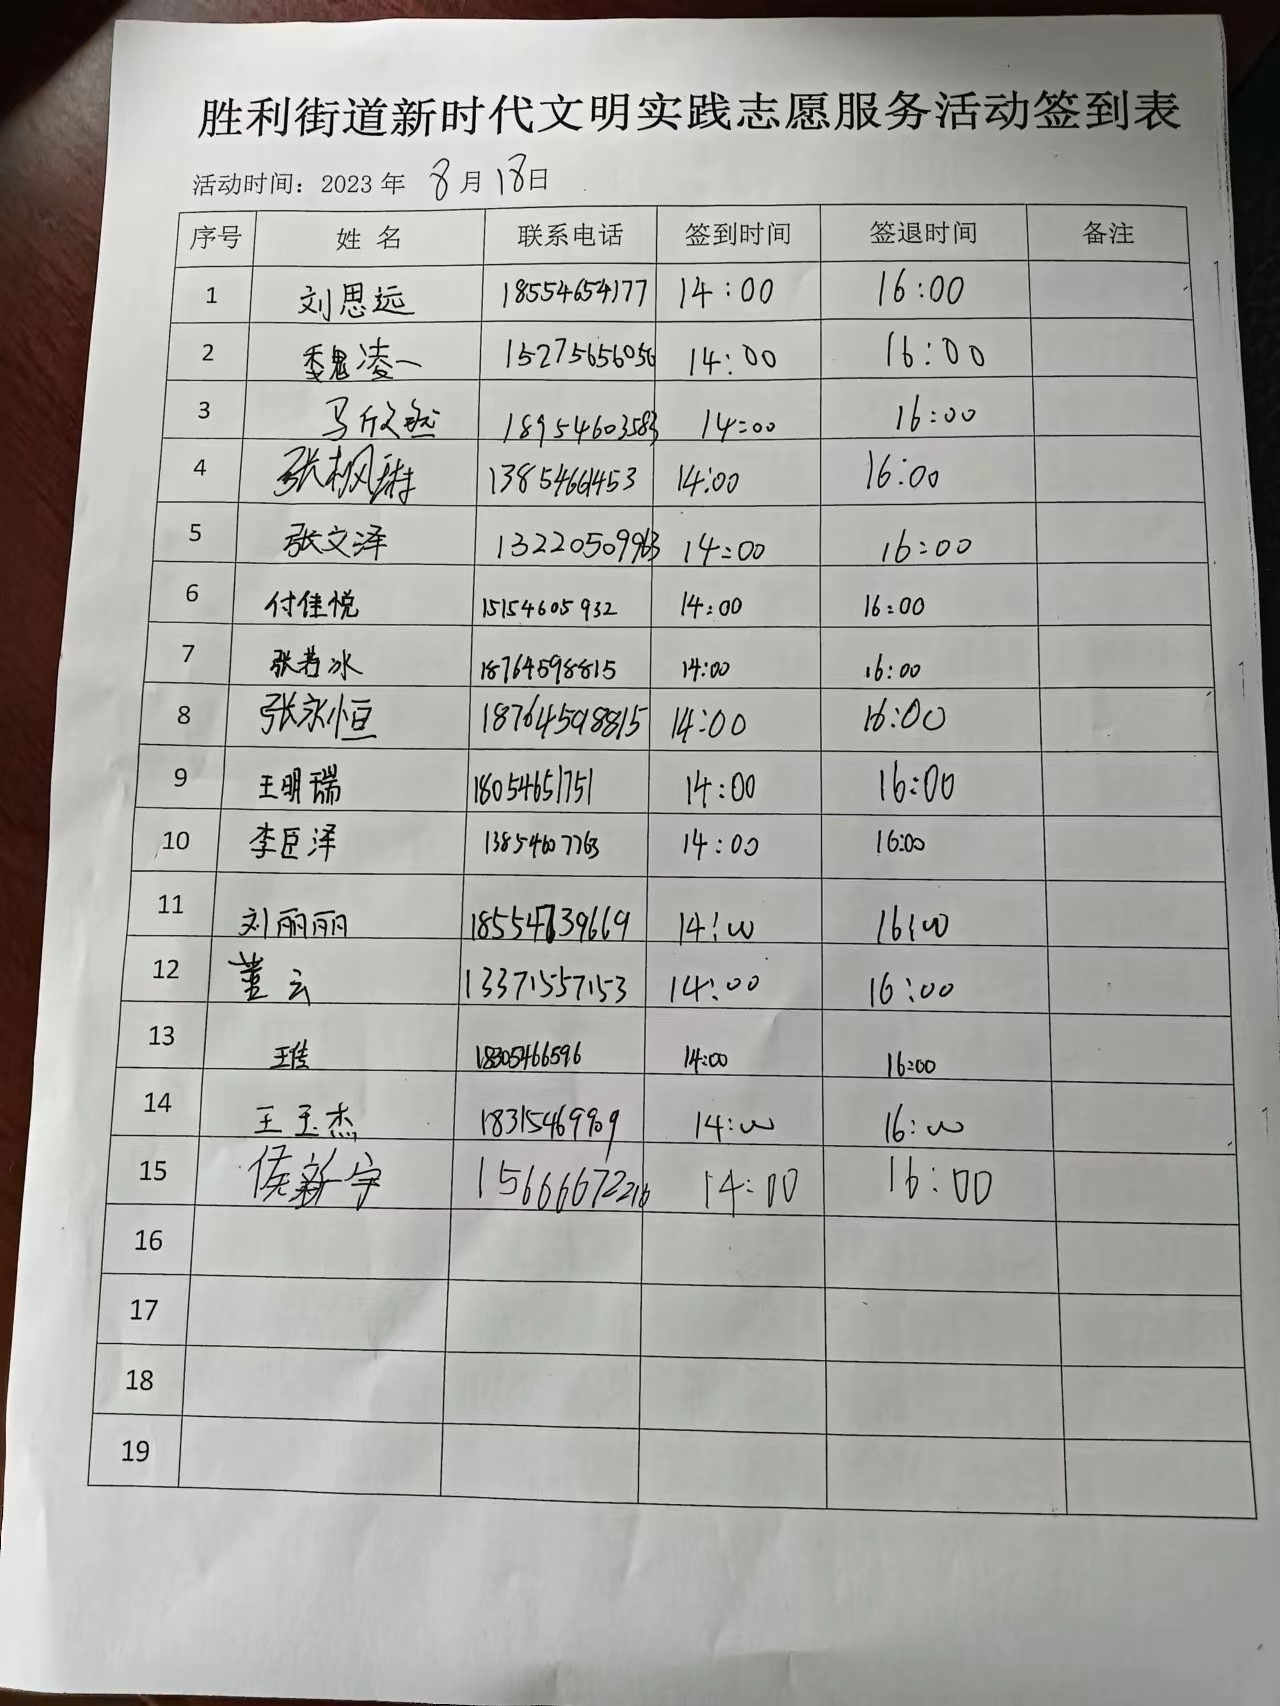 胜利街道新时代文明实践志愿服务活动签到表
活动时间：2023 年 8 月 18 日
序号 姓 名 联系电话 签到时间 签退时间 备注
1 刘思远 18554654177 14:00 16:00
2 魏凌一 15275656056 14:00 16:00
3 马欣然 18954603583 14:00 16:00
4 张枫琳 13854661453 14:00 16:00
5 张文泽 13220509963 14:00 16:00
6 付佳悦 15154605932 14:00 16:00
7 张若冰 18764598815 14:00 16:00
8 张永恒 18764598815 14:00 16:00
9 王明瑞 18054651751 14:00 16:00
10 李臣泽 13854607763 14:00 16:00
11 刘丽丽 18554739669 14:00 16:00
12 董云 13371557153 14:00 16:00
13 王佳 18305466596 14:00 16:00
14 王玉杰 18315469909 14:00 16:00
15 侯新宇 15666672216 14:00 16:00
16
17
18
19